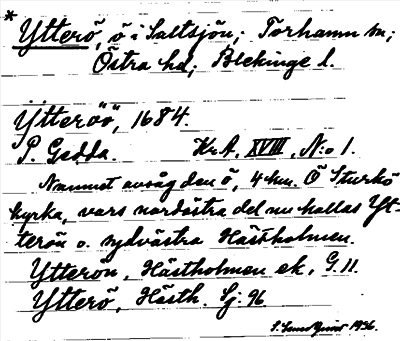 * Ytterö, ö i Saltsjön; Torhamn sn;
Östra hd; Blekinge l.
Ytteröö, 1684.
P. Gedda. Kr.A, XVIII, N:o 1.
Namnet avsåg den ö, 4 km. Ö Sturkö
kyrka, vars nordöstra del nu kallas Yt-
terön o. sydvästra Hästholmen.
Ytterön, Hästholmen ek, G. 11.
Ytterö, Hästh. Sj. 96.
1936.